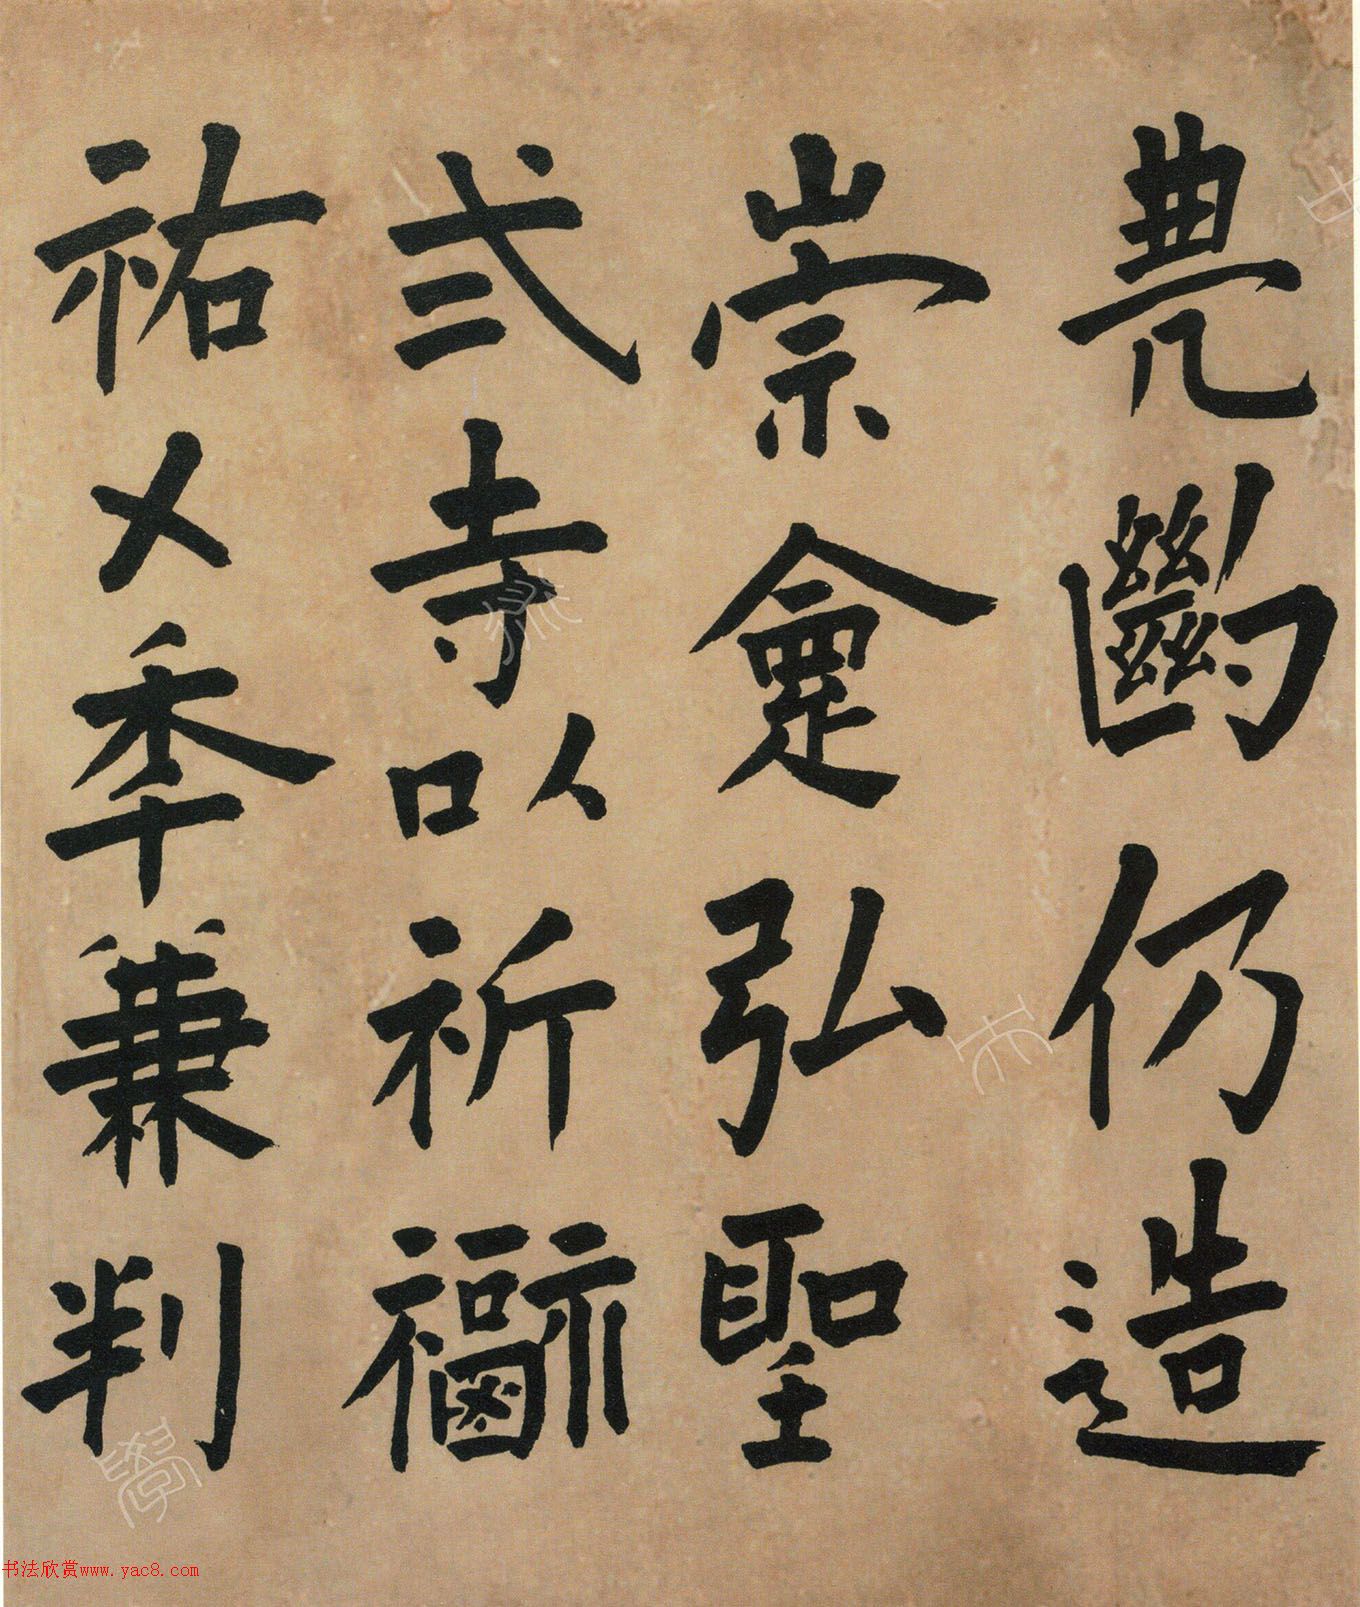 斷仍造
崇龕弘聖
弍寺以祈福
祐乂秊兼判
书法欣赏www.yac8.com